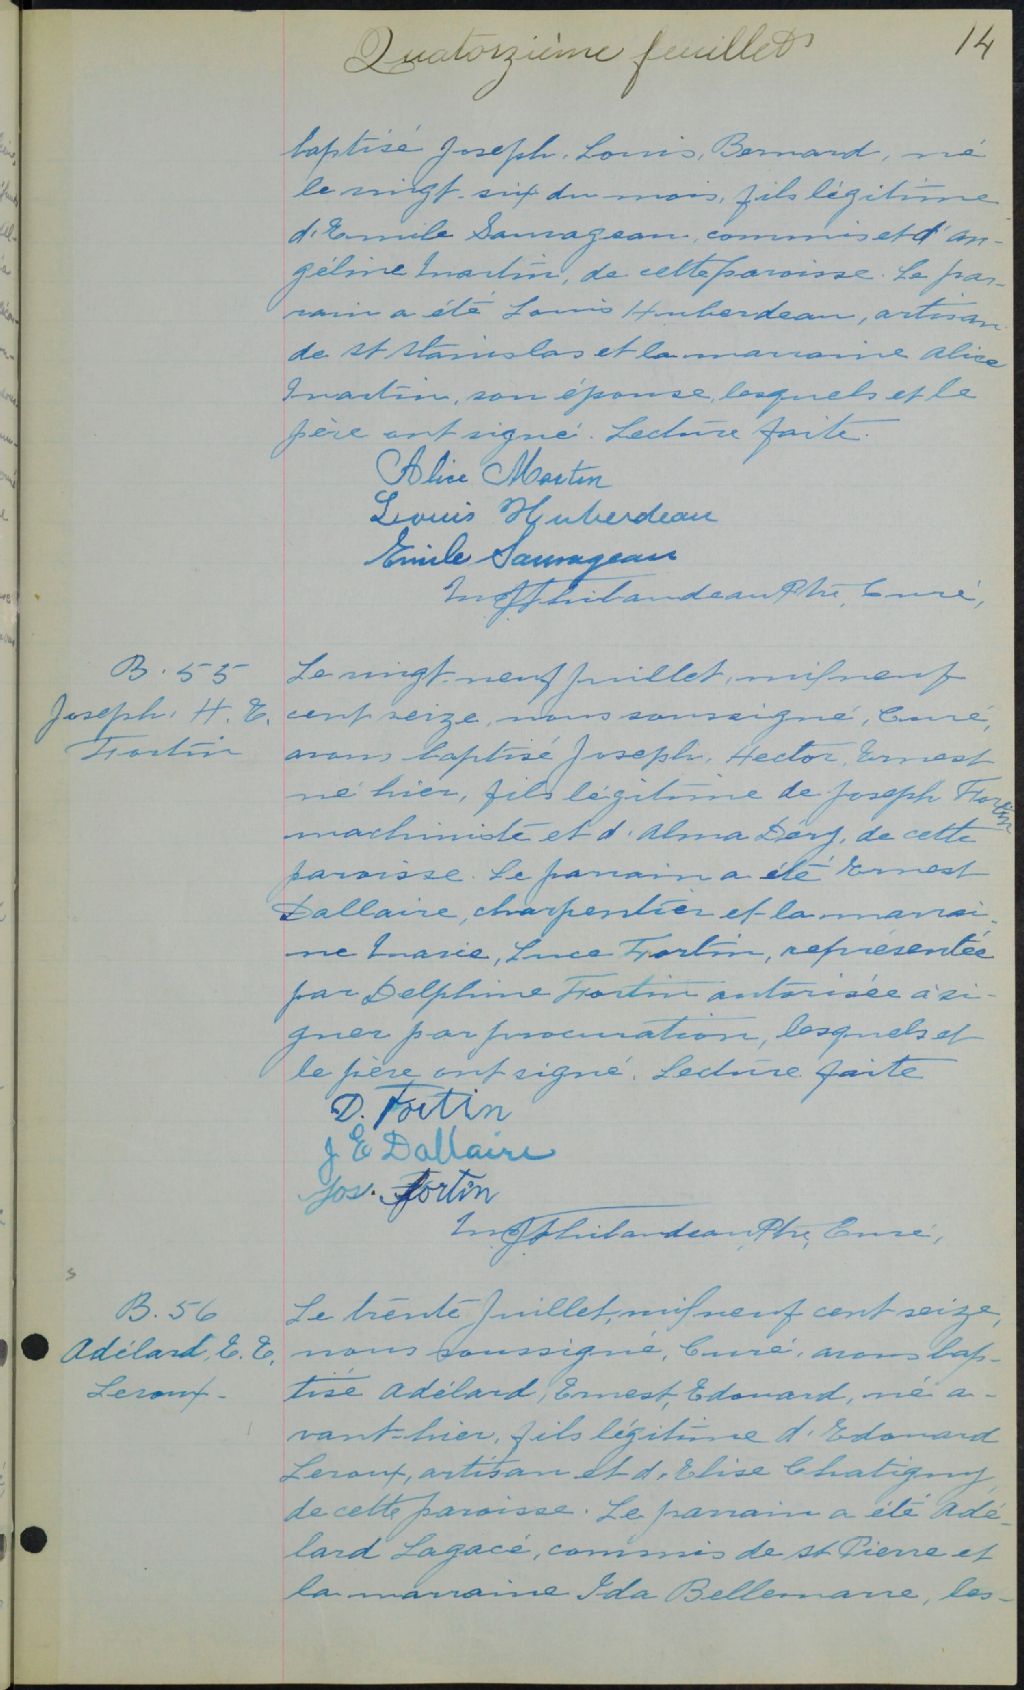 Quatorzième feuillet
14
baptisé Joseph, Louis, Bernard, né
le vingt-six du mois, fils légitime
d'Emile Sauvageau, commis et d'An-
géline Martin, de cette paroisse. Le par-
rain a été Louis Huberdeau, artisan
de St Stanislas et la marraine Alice
Martin, son épouse, lesquels et le
père ont signé. Lecture faite.
Alice Martin
Louis Huberdeau
Emile Sauvageau
Ptre, Curé,
B. 55
Joseph, H. E.
Fortin
Le vingt-neuf Juillet, mil neuf
cent seize, nous soussigné, Curé,
avons baptisé Joseph, Hector, Ernest
né hier, fils légitime de Joseph Fortin
machiniste et d'Alma Déry, de cette
paroisse. Le parrain a été Ernest
Dallaire, charpentier et la marrai-
ne Marie, Luce Fortin, représentée
par Delphine Fortin autorisée à si-
gner par procuration, lesquels et
le père ont signé. Lecture faite
D. Fortin
J E Dallaire
Jos. Fortin
Ptre, Curé,
B. 56
Adélard, E. E.
Leroux-
Le trente Juillet, mil neuf cent seize,
nous soussigné, Curé, avons bap-
tisé Adélard, Ernest, Edouard, né a-
vant-hier, fils légitime d'Edouard
Leroux, artisan et d'Elise Chatigny,
de cette paroisse. Le parrain a été Adé-
lard Lagacé, commis de St Pierre et
la marraine Ida Bellemare, les-